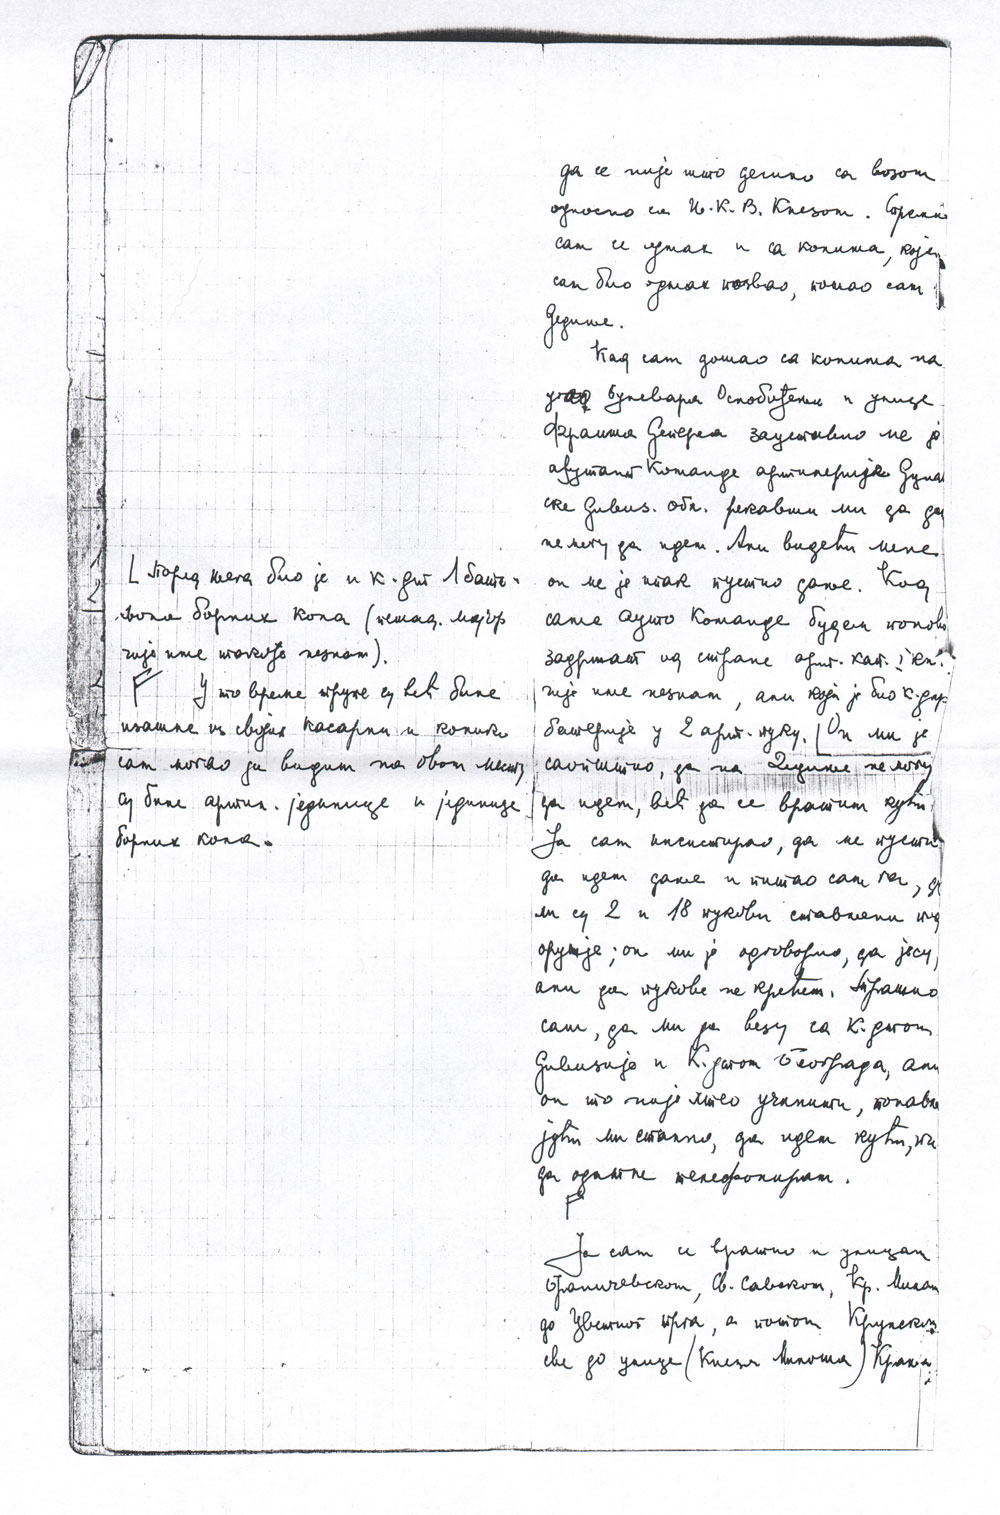 да се није што десило са возом
односно са Њ.К.В. Кнезом. Спремио
сам се одмах и са колима, која
сам био одмах позвао, пошао сам
Дедиње.
Кад сам дошао са колима на
угао Булевара Ослобођења и улице
Франша Депереа зауставио ме је
ађутант Команде артилерије Дунав
ске Дивиз. обл. рекавши ми да даље
не могу да идем. Али видећи мене
он ме је ипак пустио даље. Код
саме ауто Команде будем поново
задржат од стране арт. кап. I кл.
чије име незнам, али који је био к-дир
батерије у 2 арт. пуку. Он ми је
саопштио, да на Дедиње не могу
да идем, већ да се вратим кући.
Ја сам инсистирао, да ме пусти
да идем даље и питао сам га, да
ли су 2 и 18 пукови стављени под
оружје; он ми је одговорио, да јесу,
али да пукове не крећем. Тражио
сам, да ми да везу са К-дтом
Дивизије и К-дтом Београда, али
он то није хтео учинити, понавља
јући ми стално, да идем кући, и
да одатле телефонирам.
Ја сам се вратио и улицам
Франичевском, Св. Савском, Кр. Милан
до Цветног трга, а потом Крунском
све до улице (Кнеза Милоша) Краља
Поред тога био је и к-дит 1 батa-
љона борних кола (пешад. мајор
чије име такође незнам).
У то време трупе су већ биле
изашле из својих касарни и колико
сам могао да видим на овом месту
су биле артил. јединице и јединице
борних кола.